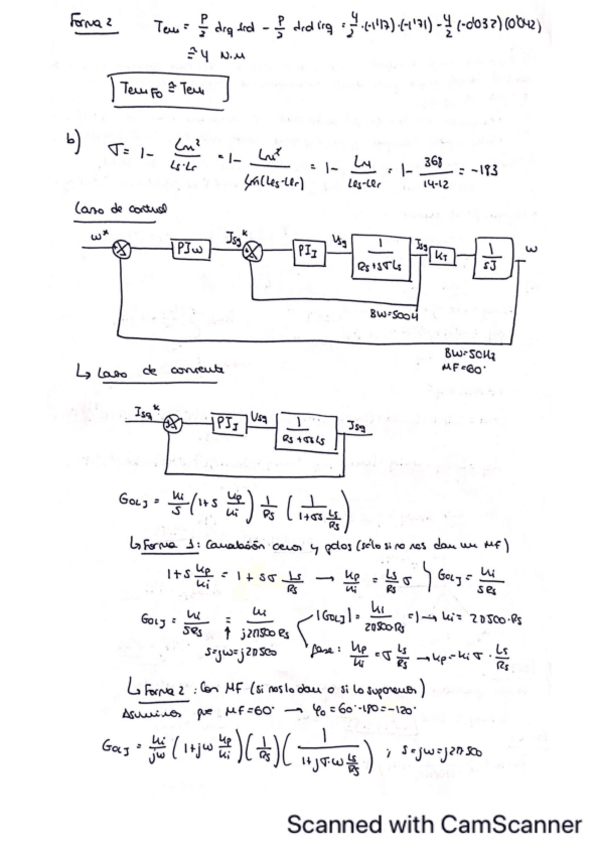 Forma 2 Tem = P/2 ψrq ird − P/2 ψrd irq = 4/2 ·(-1'17)·(-1'71) − 4/2 (-0'032)(0'042)
≅ 4 N·m
Tem FO ≅ Tem
b) σ = 1 − Lm²/Ls·Lr = 1 − Lm²/Lm(Lls·Llr) = 1 − Lm/Lls·Llr = 1 − 368/14·12 = −1'93
Lazo de control
ω* PIω Isq* PI_I Vsq 1/Rs+sσLs Isq K_T 1/sJ ω
BW=500H
BW=50Hz
MF=60°
↳ Lazo de corriente
Isq* PI_I Vsq 1/Rs+σsLs Isq
G_OLI = ki/s (1+s kp/ki) 1/Rs (1/1+σs Ls/Rs)
↳ Forma 1: Cancelación ceros y polos (sólo si no nos dan un MF)
1+s kp/ki = 1+sσ Ls/Rs → kp/ki = Ls/Rs σ } G_OLI = ki/sRs
G_OLI = ki/sRs = ki/j2π500Rs |G_OLI| = ki/2π500Rs = 1 → ki = 2π500·Rs
s=jω=j2π500 fase: kp/ki = σ Ls/Rs → kp = ki σ · Ls/Rs
↳ Forma 2: Con MF (si nos lo dan o si lo suponemos)
Asumimos que MF=60° → φo = 60°-180 = -120°
G_OLI = ki/jω (1+jω kp/ki)(1/Rs)(1/1+jσ·ω Ls/Rs) ; s=jω=j2π500
Scanned with CamScanner